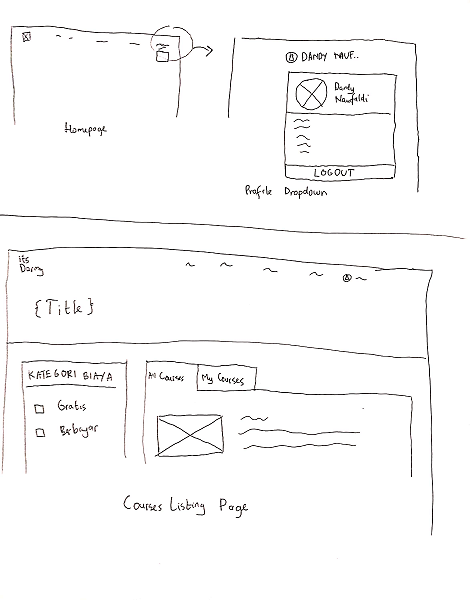 DANDY NAUF..
Dandy
Naufaldi
LOGOUT
Homepage
Profile Dropdown
its
Dandy
{Title}
KATEGORI BIAYA
Gratis
Berbayar
All Courses
My Courses
Courses Listing Page